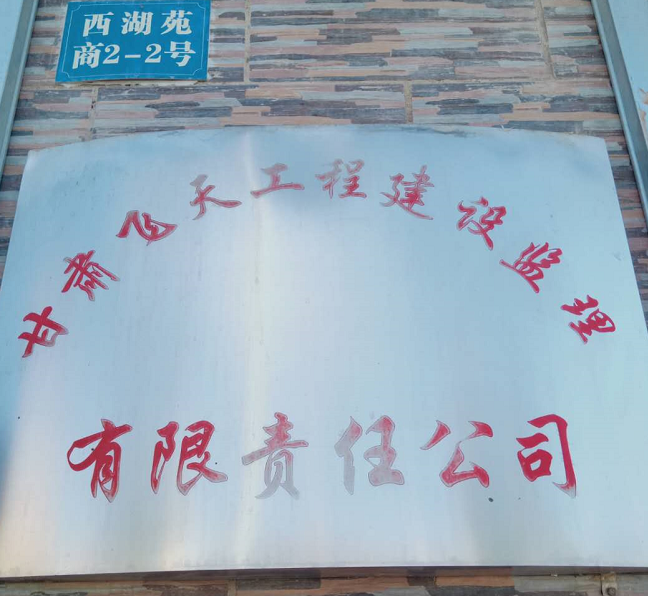 西湖苑
商2-2号
甘肃飞天工程建设监理
有限责任公司